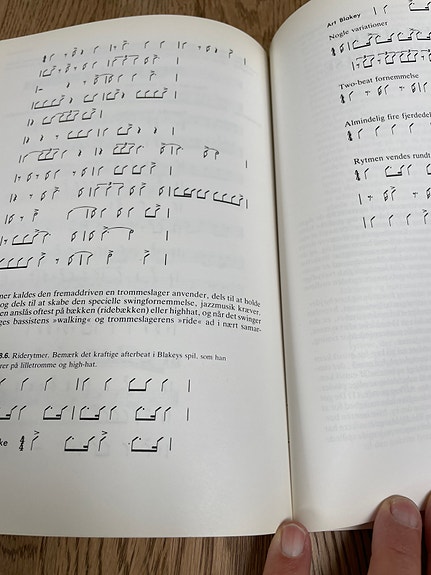 ner kaldes den fremaddriven en trommeslager anvender, dels til at holde
og dels til at skabe den specielle swingfornemmelse, jazzmusik kræver.
en anslås oftest på bækken (ridebækken) eller highhat, og når det swinger
ges bassistens »walking« og trommeslagerens »ride« ad i nært samar-
8.6. Riderytmer. Bemærk det kraftige afterbeat i Blakeys spil, som han
rer på lilletromme og high-hat.
ke 4/4
Art Blakey
Nogle variationer
Two-beat fornemmelse
Almindelig fire fjerdedel
Rytmen vendes rundt